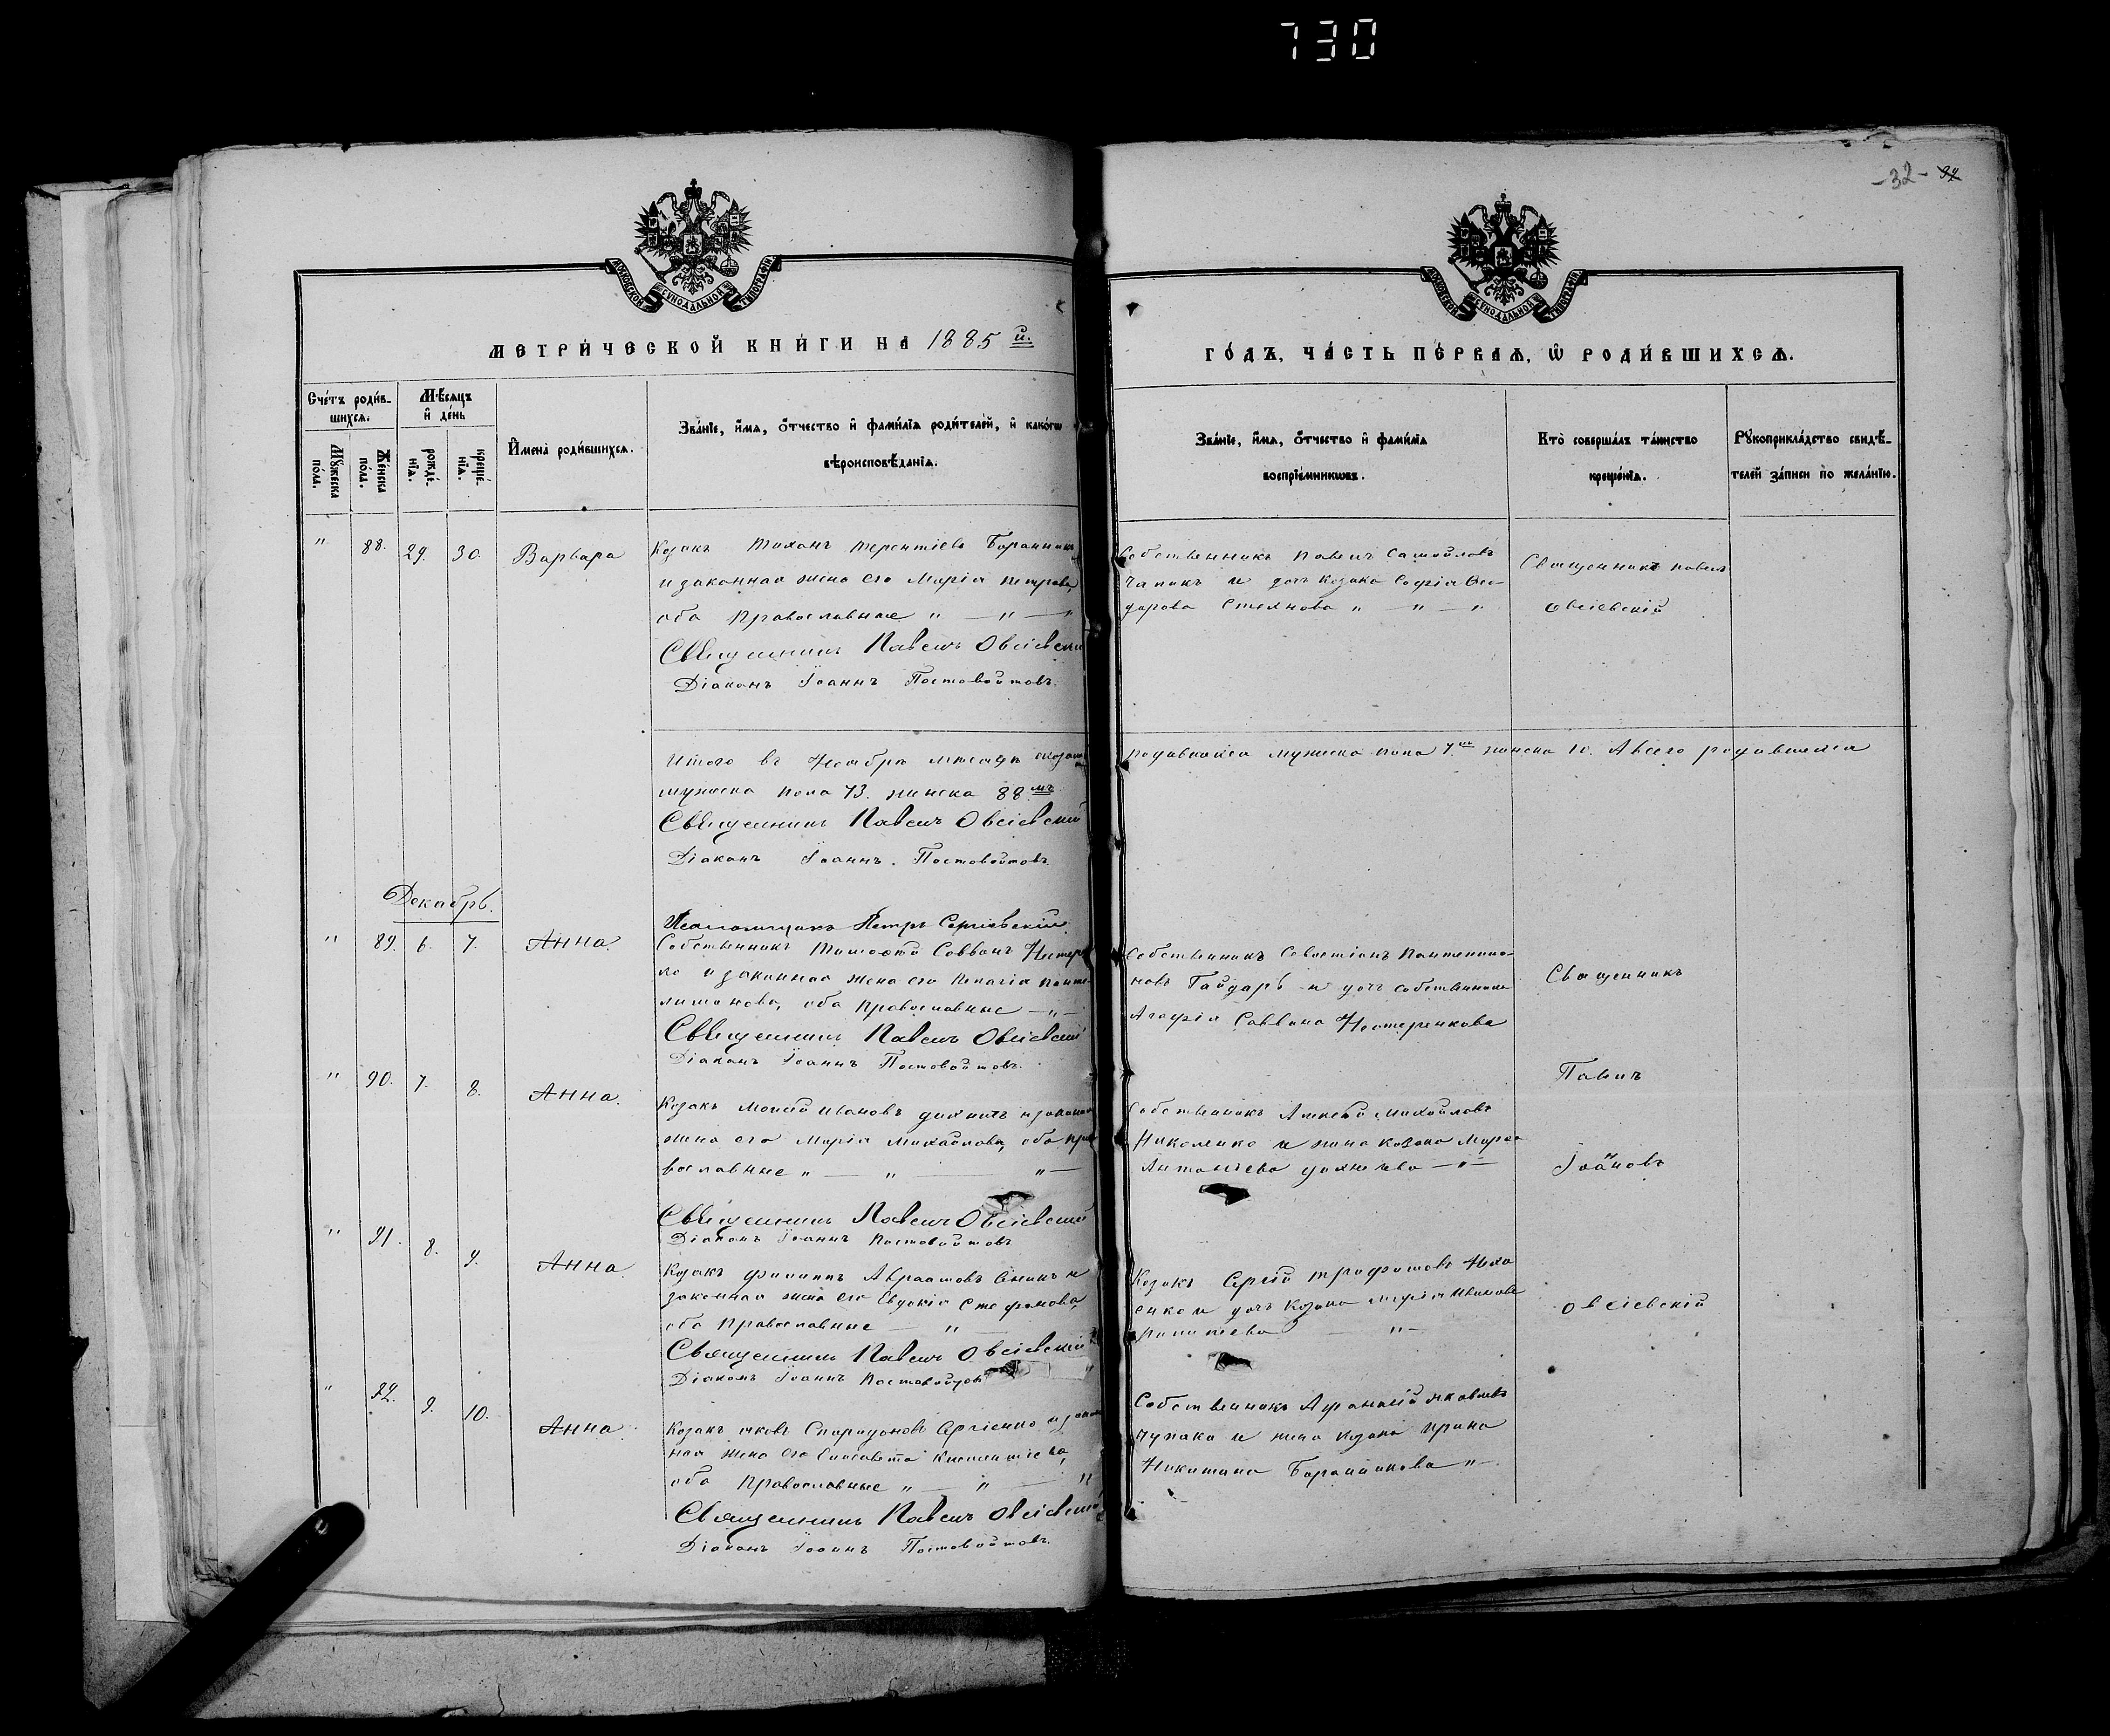 730
-32- 34
МОСКОВСКОЙ СѴНОДАЛЬНОЙ ТИПОГРАФІИ
МОСКОВСКОЙ СѴНОДАЛЬНОЙ ТИПОГРАФІИ
МЕТРИ́ЧЕСКОЙ КНИ́ГИ НА 1885 й.
ГО́ДЪ, ЧА́СТЬ ПЕ́РВАѦ, Ѿ РОДИ́ВШИХСѦ.
Сче́тъ роди́в-
шихсѧ.
Мѣ́сѧцъ
и де́нь
Му́жеска по́ла.
Же́нска по́ла.
рожде́-нїѧ.
креще́-нїѧ.
И҆мена̀ роди́вшихсѧ.
Зва́нїе, и҆́мѧ, ѻ҆́тчество и҆ фами́лїѧ роди́телей, и҆ како́гѡ
вѣроисповѣ́данїѧ.
Зва́нїе, и҆́мѧ, ѻ҆́тчество и҆ фами́лїѧ
воспрїе́мникѡвъ.
Кто̀ соверша́лъ та́инство
креще́нїѧ.
Рꙋкоприкла́дство свидѣ́-
телей за́писи по жела́нїю.
" 88. 29. 30. Варвара
Козакъ Тихонъ Терентіевъ Баранник
и законная жена его Марія Петрова,
оба Православные " — " — "
Священникъ Павелъ Овсіевскій
Діаконъ Іоаннъ Постовойтовъ.
Собственникъ Павелъ Самойловъ
Чапакъ и дочь козака Софія Ѳео-
дорова " " — "
Священникъ Павелъ
Овсіевскій
Итого въ Ноябрѣ мѣсяцѣ
родившихся мужеска пола 7. женска 10. А всего родившихся
мужеска пола 73. женска 88мъ
Священникъ Павелъ Овсіевскій
Діаконъ Іоаннъ Постовойтовъ.
Декабрь.
Псаломщикъ Петръ Сергіевскій.
" 89. 6. 7. Анна.
Собственникъ Тимоѳей Саввинъ Нестерен
ко и законная жена его Пелагія Панте-
лимонова, оба Православные — " —
Священникъ Павелъ Овсіевскій
Діаконъ Іоаннъ Постовойтовъ.
Собственникъ Севастіанъ Пантелимо-
новъ Гайдарь и дочь собственника
Агафія Саввина Нестеренкова
Священникъ
" 90. 7. 8. Анна.
Козакъ Моисей Ивановъ и законная
жена его Марія Михайлова, оба пра
вославные " — " — " —
Священникъ Павелъ Овсіевскій
Діаконъ Іоаннъ Постовойтовъ
Собственникъ Алексѣй Михайловъ
Николенко и жена козака Марѳа
Антоніева — " —
Павелъ
Іоановъ
" 91. 8. 9. Анна.
Козакъ Филиппъ Авраамовъ и
законная жена его Евдокія Стефанова,
оба Православные — " —
Священникъ Павелъ Овсіевскій
Діаконъ Іоаннъ Постовойтовъ
Козакъ Сергій Трофимовъ
енко и дочь козака Марія Иванова
— " —
Овсіевскій
" 92. 9. 10. Анна.
Козакъ Яковъ Спиридоновъ Сергіенко и закон
ная жена его Елисавета Климентіева,
оба Православные " — " — "
Священникъ Павелъ Овсіевскій
Діаконъ Іоаннъ Постовойтовъ.
Собственникъ Афанасій Яковлевъ
и жена козака Ирина
Никитина Баранникова " —